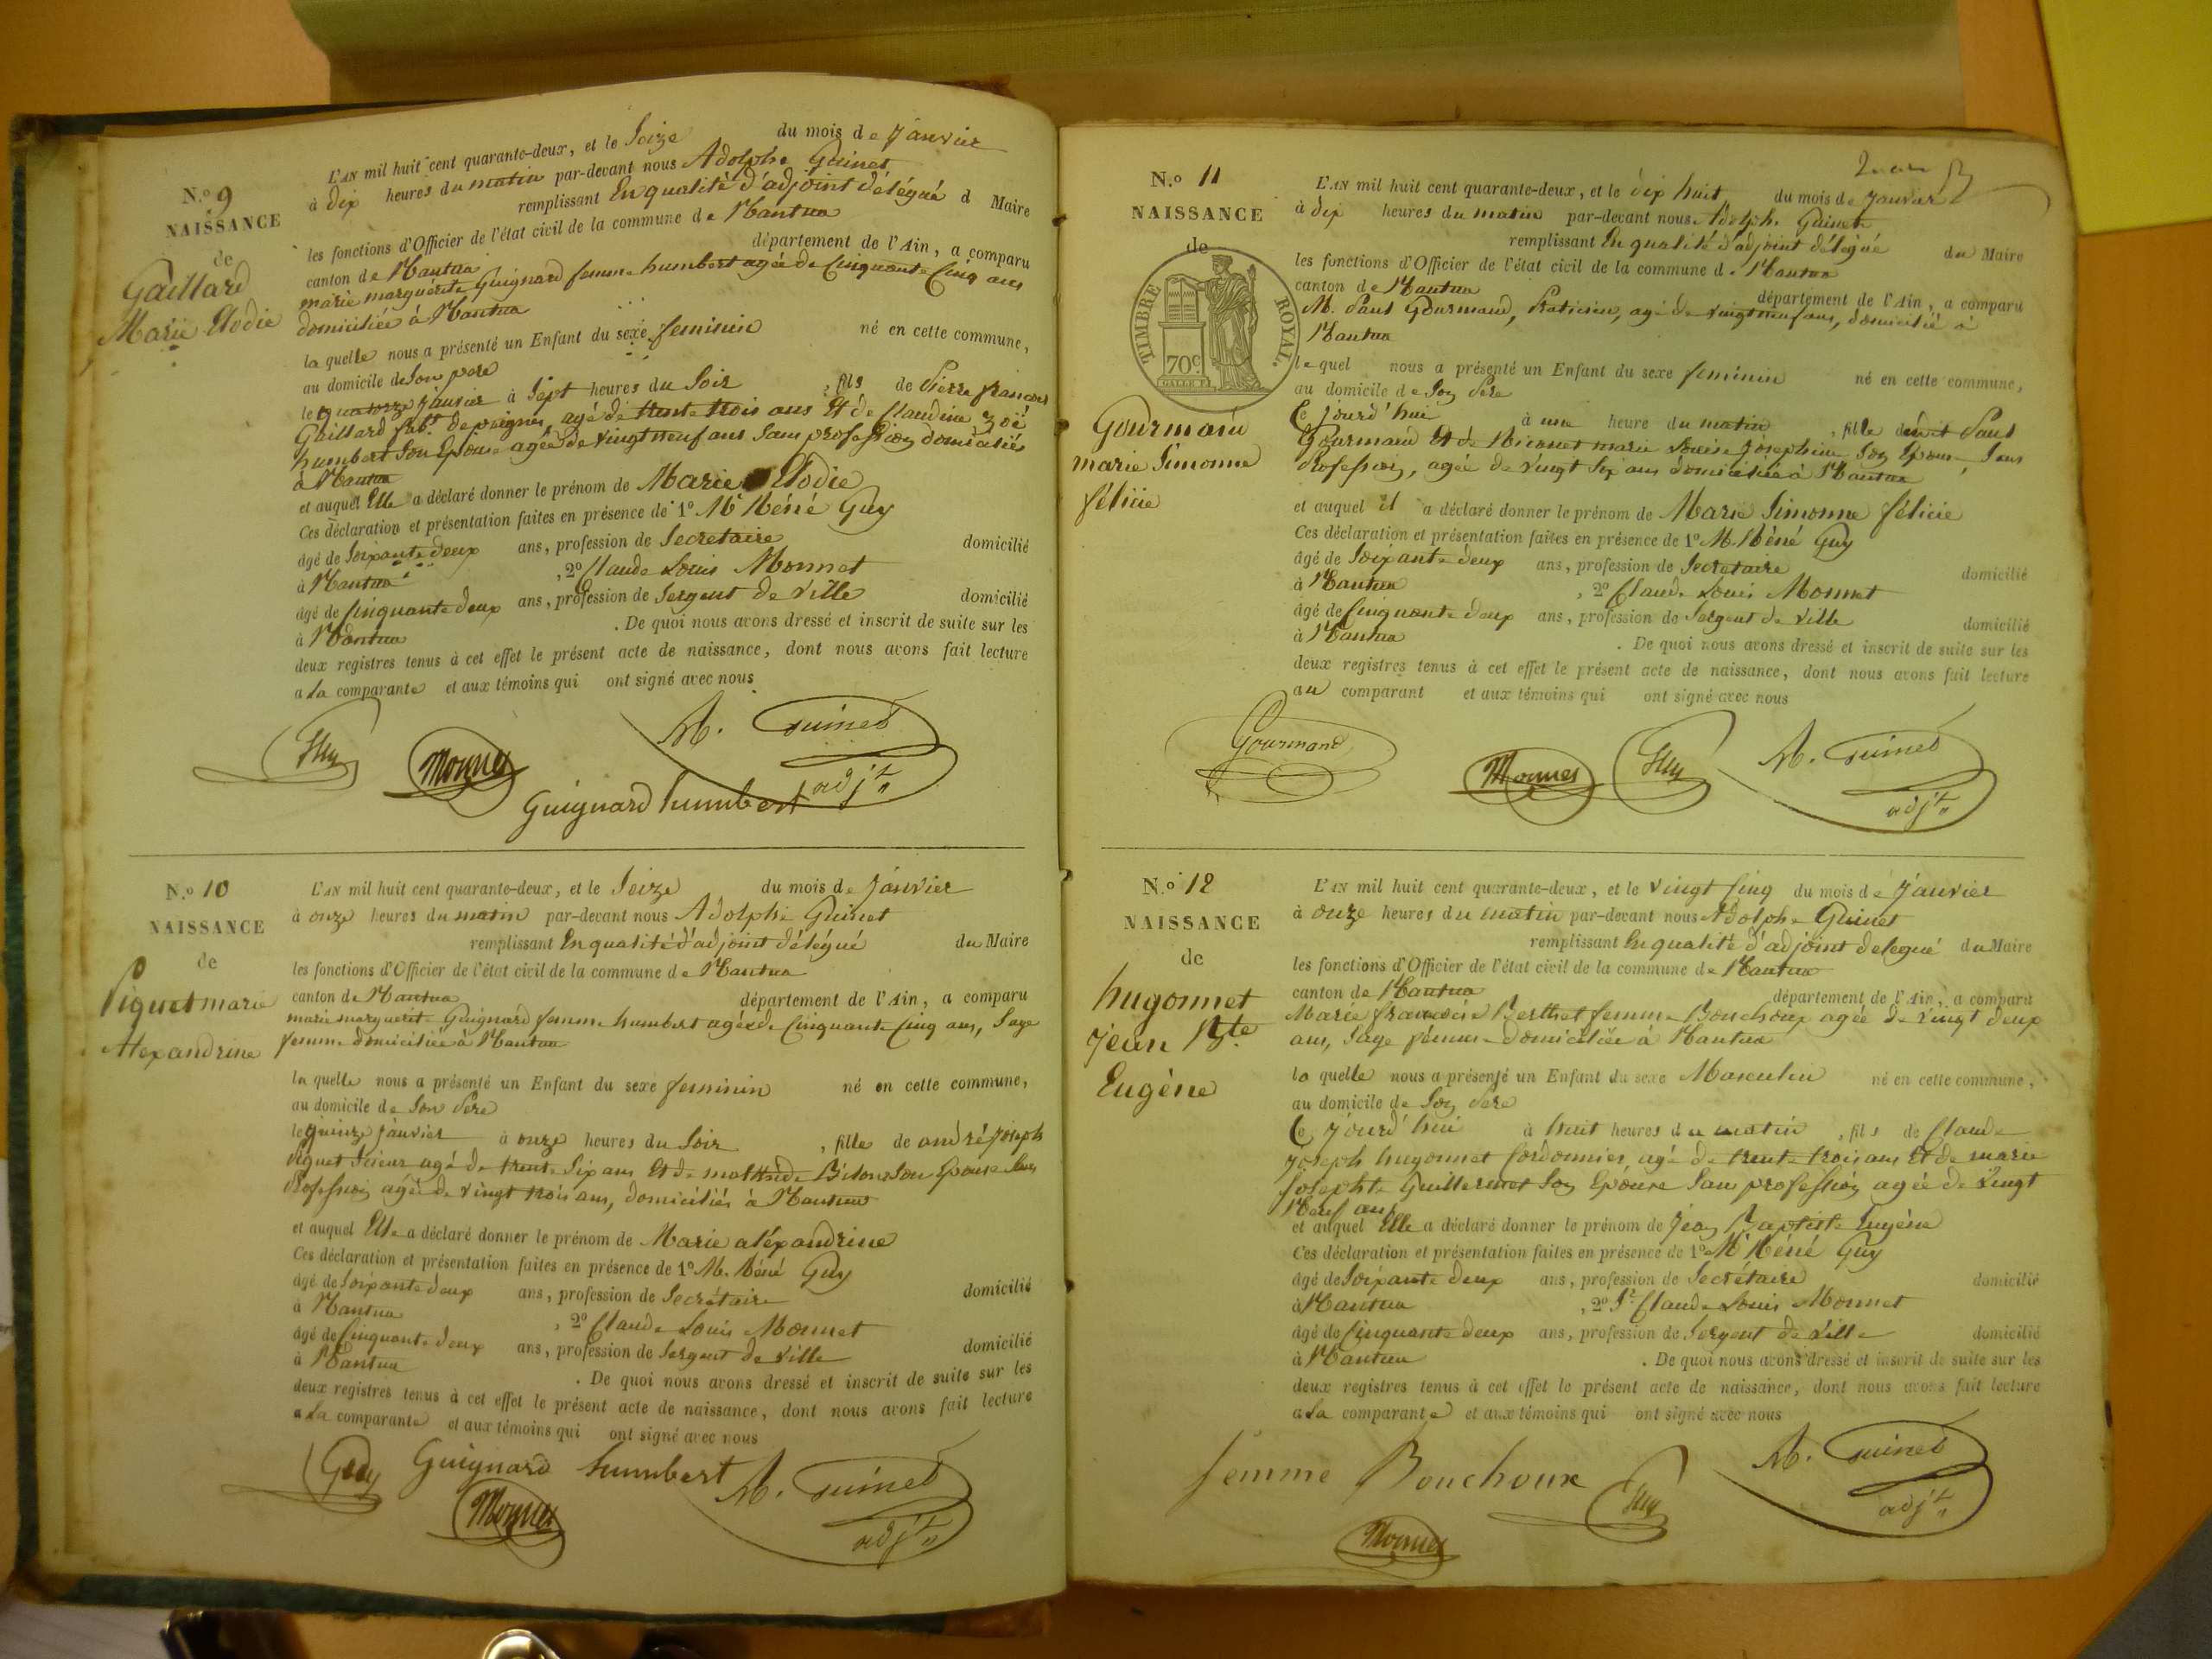 N.o 9
NAISSANCE
de
Gaillard
Marie Elodie
L'AN mil huit cent quarante-deux, et le Seize du mois de Janvier
à dix heures du matin par-devant nous Adolphe Guinet
remplissant En qualité d'adjoint délégué d Maire
les fonctions d'Officier de l'état civil de la commune de Nantua
canton de Nantua département de l'Ain, a comparu
marie marguerite Guignard femme humbert agée de Cinquante Cinq ans
domiciliée à Nantua
la quelle nous a présenté un Enfant du sexe feminin né en cette commune,
au domicile de Son pere
le quatorze Janvier à Sept heures du Soir, fils de Pierre françois
Gaillard fab.t de peignes, agé de trente trois ans Et de Claudine Zoé
humbert Son Epouse agée de vingt neuf ans Sans profession domiciliés
à Nantua
et auquel Elle a déclaré donner le prénom de Marie Elodie
Ces déclaration et présentation faites en présence de 1o M Réné Guy
âgé de Soixante deux ans, profession de Secretaire domicilié
à Nantua, 2o Claude Louis Monnet
âgé de Cinquante deux ans, profession de Sergent de Ville domicilié
à Nantua. De quoi nous avons dressé et inscrit de suite sur les
deux registres tenus à cet effet le présent acte de naissance, dont nous avons fait lecture
a la comparante et aux témoins qui ont signé avec nous
Guy Monnet A. Guinet
adj.t
Guignard humbert
N.o 10
NAISSANCE
de
Piquet marie
Alexandrine
L'AN mil huit cent quarante-deux, et le Seize du mois de Janvier
à onze heures du matin par-devant nous Adolphe Guinet
remplissant En qualité d'adjoint délégué du Maire
les fonctions d'Officier de l'état civil de la commune de Nantua
canton de Nantua département de l'Ain, a comparu
marie marguerite Guignard femme humbert agée de Cinquante Cinq ans, Sage
femme domiciliée à Nantua
la quelle nous a présenté un Enfant du sexe feminin né en cette commune,
au domicile de Son Père
le quinze Janvier à onze heures du Soir, fille de andré Joseph
Piquet Scieur agé de trente Six ans Et de Son Epouse Sans
Profession agée de vingt trois ans, domiciliés à Nantua
et auquel Elle a déclaré donner le prénom de Marie aléxandrine
Ces déclaration et présentation faites en présence de 1o M. Réné Guy
âgé de Soixante deux ans, profession de Secrétaire domicilié
à Nantua, 2o Claude Louis Monnet
âgé de Cinquante deux ans, profession de Sergent de Ville domicilié
à Nantua. De quoi nous avons dressé et inscrit de suite sur les
deux registres tenus à cet effet le présent acte de naissance, dont nous avons fait lecture
a la comparante et aux témoins qui ont signé avec nous
Guy Guignard humbert A. Guinet
Monnet adj.t
N.o 11
NAISSANCE
de
TIMBRE ROYAL.
70c
Gourmand
marie Simonne
félicie
L'AN mil huit cent quarante-deux, et le dix huit du mois de Janvier
à dix heures du matin par-devant nous Adolphe Guinet
remplissant En qualité d'adjoint délégué du Maire
les fonctions d'Officier de l'état civil de la commune d. Nantua
canton de Nantua département de l'Ain, a comparu
M. Paul Gourmand, Praticien, agé de vingt neuf ans, domicilié à
Nantua
lequel nous a présenté un Enfant du sexe feminin né en cette commune,
au domicile de Son Père
Ce jourd'hui à une heure du matin, fille dudit Paul
Gourmand Et de marie Louise Joséphine Son Epouse, Sans
Profession, agée de vingt Six ans domiciliée à Nantua
et auquel il a déclaré donner le prénom de Marie Simonne félicie
Ces déclaration et présentation faites en présence de 1o M. Réné Guy
âgé de Soixante deux ans, profession de Secretaire domicilié
à Nantua, 2o Claude Louis Monnet
âgé de Cinquante deux ans, profession de Sergent de Ville domicilié
à Nantua. De quoi nous avons dressé et inscrit de suite sur les
deux registres tenus à cet effet le présent acte de naissance, dont nous avons fait lecture
au comparant et aux témoins qui ont signé avec nous
Gourmand Monnet Guy A. Guinet
adj.t
N.o 12
NAISSANCE
de
hugonnet
Jean B.te
Eugène
L'AN mil huit cent quarante-deux, et le vingt Cinq du mois de Janvier
à onze heures du matin par-devant nous Adolphe Guinet
remplissant En qualité d'adjoint delegué du Maire
les fonctions d'Officier de l'état civil de la commune de Nantua
canton de Nantua département de l'Ain, a comparu
Marie françoise Berthet femme Bouchoux agée de vingt deux
ans, Sage femme domiciliée à Nantua
la quelle nous a présenté un Enfant du sexe Masculin né en cette commune,
au domicile de Son Père
Ce Jourd'hui à huit heures du matin, fils de Claude
Joseph hugonnet Cordonnier agé de trente trois ans Et de marie
Josephte Guillermet Son Epouse Sans profession agée de Vingt
Neuf ans
et auquel Elle a déclaré donner le prénom de Jean Baptiste Eugène
Ces déclaration et présentation faites en présence de 1o M Réné Guy
âgé de Soixante deux ans, profession de Secrétaire domicilié
à Nantua, 2o S.r Claude Louis Monnet
âgé de Cinquante deux ans, profession de Sergent de Ville domicilié
à Nantua. De quoi nous avons dressé et inscrit de suite sur les
deux registres tenus à cet effet le présent acte de naissance, dont nous avons fait lecture
a la comparante et aux témoins qui ont signé avec nous
femme Bouchoux Guy A. Guinet
adj.t
Monnet